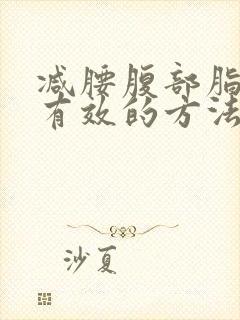 减腰腹部脂
有效的方法
沙夏